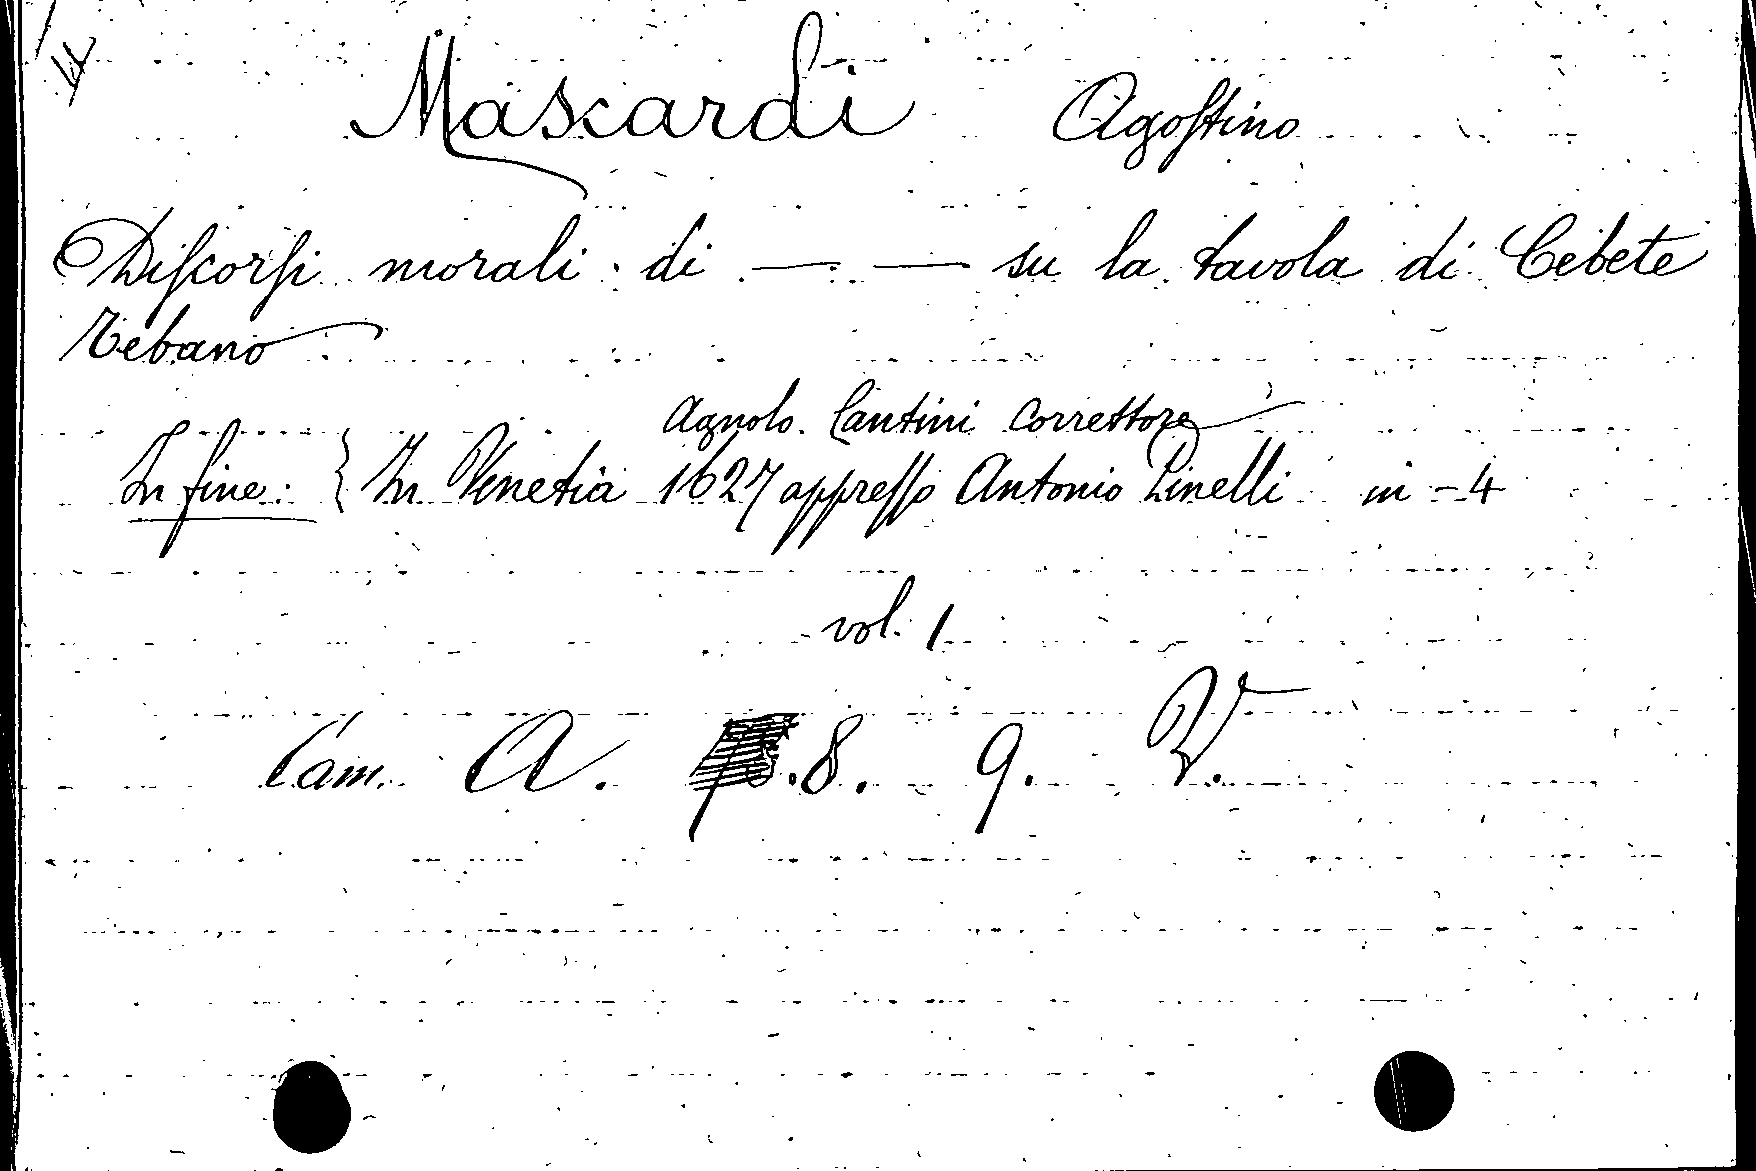 Mascardi Agoſtino
Diſcorſi morali di — — su la tavola di Cebete
Tebano
Agnolo Cantini Correttore
In fine: { In Venetia 1627 appreſſo Antonio Pinelli in-4
vol. 1
Cam. A. 8. 9. V.